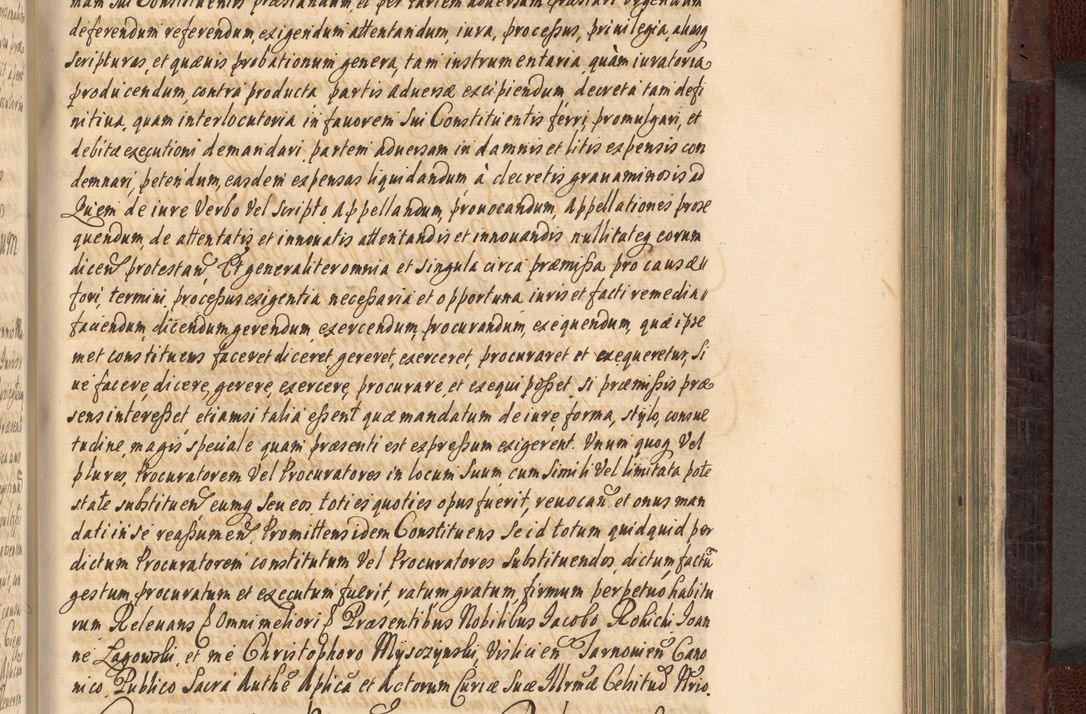 nam sui Constituentis præstandum et per Partem adversam præstari urgendum
deferendum referendum, exigendum attentandum, iura, processus, privilegia, aliasq
scripturas, et quævis probationum genera, tam instrumentaria, quàm iuratoria
producendum, contra producta partis adversæ excipiendum, decreta tam defi
nitiua, quam interlocutoria in fauorem sui Constituentis ferri, promulgari, et
debitæ executioni demandari, partem adversam in damnis et litis expensis con
demnari, petendum, easdem expensas liquidandum, à decretis grauaminosis ad
Quem de iure Verbo Vel Scripto Appellandum, prouocandum, Appellationes prose
quendum, de attentatis et innouatis attentandis et innouandis nullitateq eorum
dicen protestan, Et generaliter omnia et singula circa præmissa pro causæ
fori, termini, processus exigentia necessaria et opportuna iuris et facti remedia
faciendum, dicendum gerendum, exercendum, procurandum, exequendum, quæ ipse
met constituens faceret diceret, gereret, exerceret, procuraret et exequeretur, si
ué facere, dicere, gerere, exercere, procurare, et exequi posset, si præmissis præ
sens interesset, etiamsi talia essent quæ mandatum de iure, forma, stylo, consue
tudine, magis speciale quam præsenti est expressum exigerent. Unum quoq Vel
plures, Procuratorem Vel Procuratores in locum suum cum simili Vel limitata pote
state substituen eumq seu eos, toties quoties opus fuerit, reuocan et onus man
dati in se reassumen, Promittens idem Constituens se id totum quidquid per
dictum Procuratorem constitutum Vel Procuratores substituendos dictum factũ
gestum, procuratum et executum fuerit, ratum gratum, firmum perpetuo habitu
rum Releuans Omni meliori Præsentibus Nobilibus Jacobo Rohicki Joan
ne Łagowski, et me Christophoro Mysczynski, Vislicien Tarnouien Cano
nico, Publico Sacra Authe Aplica et Actorum Curiæ Suæ Illrmæ Celsitud Nrio.